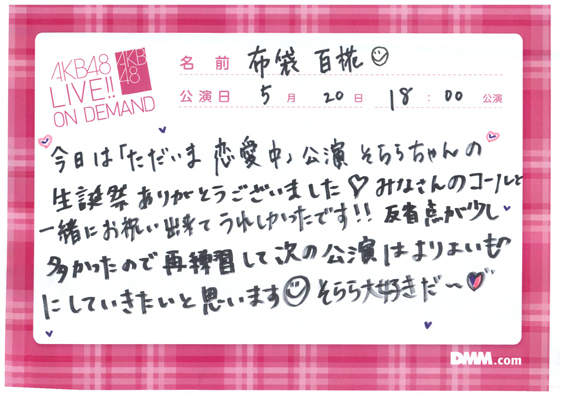 AKB48
LIVE!!
ON DEMAND
AKB
48
名前 布袋 百椛
公演日 5月20日 18:00 公演
今日は「ただいま 恋愛中」公演 そららちゃんの
生誕祭ありがとうございました♡ みなさんのコールと
一緒にお祝い出来てうれしかったです!! 反省点が少し
多かったので再練習して次の公演はよりよいもの
にしていきたいと思います そらら大好きだ〜
DMM.com